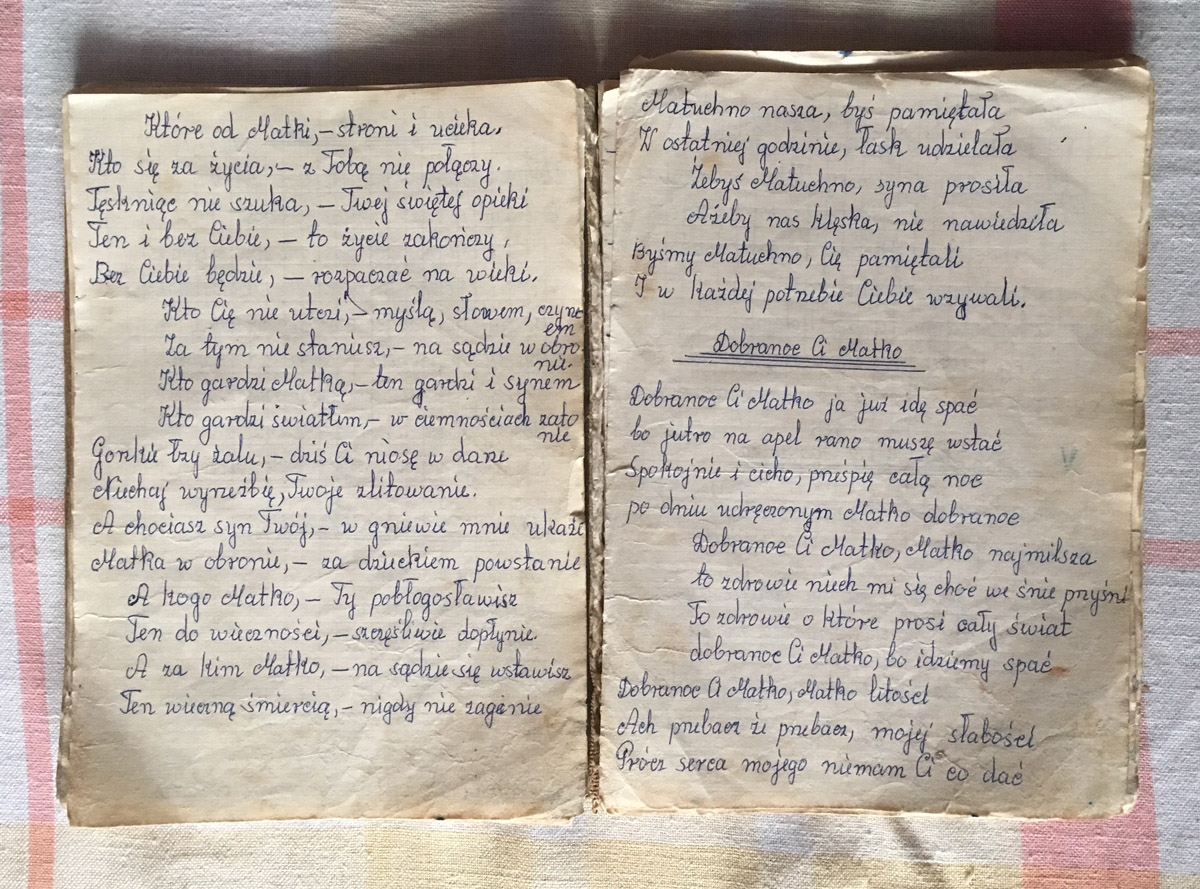 Które od Matki,- stroni i ucieka.
Kto się za życia,- z Tobą nie połączy.
Tęskniąc nie szuka, - Twej świętej opieki
Ten i bez Ciebie, - to życie zakończy,
Bez Ciebie będzie, - rozpaczać na wieki.
Kto Cię nie uczci,- myślą, słowem, czyn
em
Za tym nie staniesz,- na sądzie w obro
nie.
Kto gardzi Matką,- ten gardzi i synem
Kto gardzi światłem,- w ciemnościach zato
nie
Gorzkie łzy żalu,- dziś Ci niosę w dani
Niechaj wyrzeźbię, Twoje zlitowanie.
A chociasz syn Twój,- w gniewie mnie ukaże
Matka w obronie,- za dzieckiem powstanie
A kogo Matko,- Ty pobłogosławisz
Ten do wieczności,- szczęśliwie dopłynie.
A za kim Matko, - na sądzie się wstawisz
Ten wieczną śmiercią,- nigdy nie zaginie
Matuchno nasza, byś pamiętała
W ostatniej godzinie, łask udzielała
Żebyś Matuchno, syna prosiła
Ażeby nas klęska, nie nawiedziła
Byśmy Matuchno, Cię pamiętali
I w każdej potrzebie Ciebie wzywali.
Dobranoc Ci Matko
Dobranoc Ci Matko ja już idę spać
bo jutro na apel rano muszę wstać
Spokojnie i cicho, prześpię całą noc
po dniu udręczonym Matko dobranoc
Dobranoc Ci Matko, Matko najmilsza
to zdrowie niech mi się choć we śnie przyśni
To zdrowie o które prosi cały świat
dobranoc Ci Matko, bo idziemy spać
Dobranoc Ci Matko, Matko litości
Ach przebacz że przebacz, mojej słabości
Prócz serca mojego niemam Ci co dać